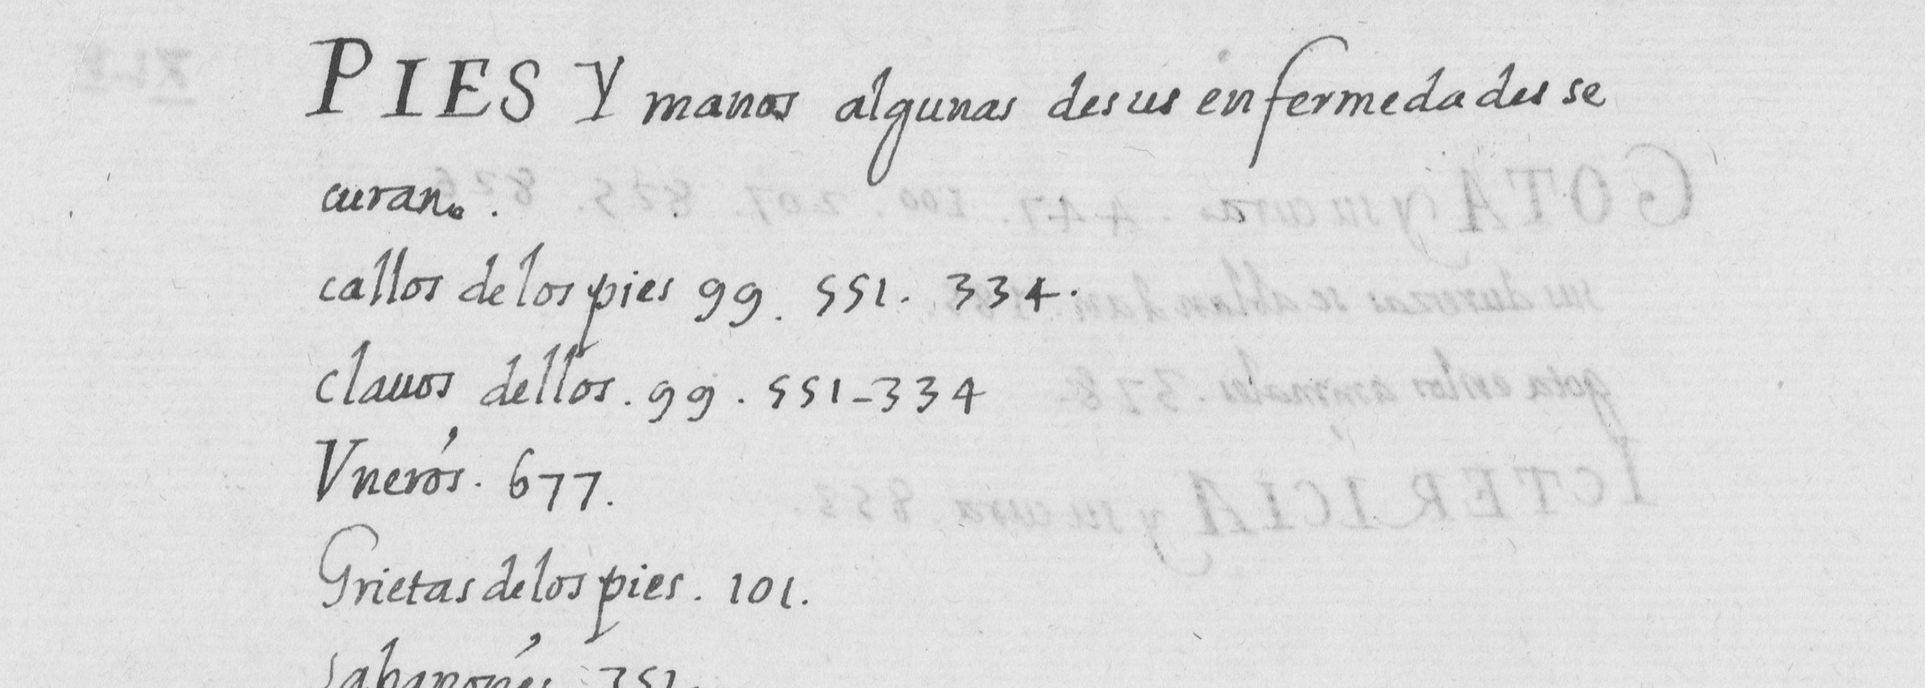 PIES Y manos algunas desus enfermedades se
curan.
callos delos pies 99. 551. 334.
clauos dellos. 99. 551-334
Vnerós. 677.
Grietas delos pies. 101.
sabanónes. 351.